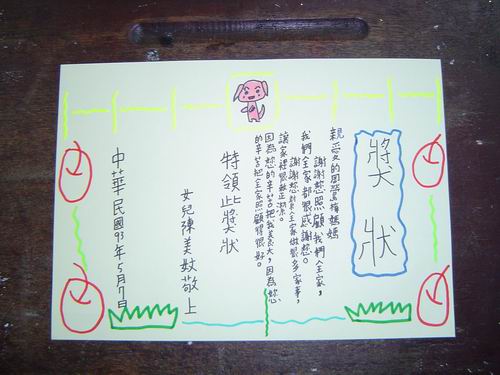 獎狀
親愛的周梅媽媽
謝謝您照顧我們全家，
我們全家都很感謝您。
謝謝您對全家做很多家事，
讓家裡很整潔。
因為您的辛苦把我養長大，因為您
的辛苦把全家照顧得很好。
特領此獎狀
女兒陳美妏敬上
中華民國93年5月7日